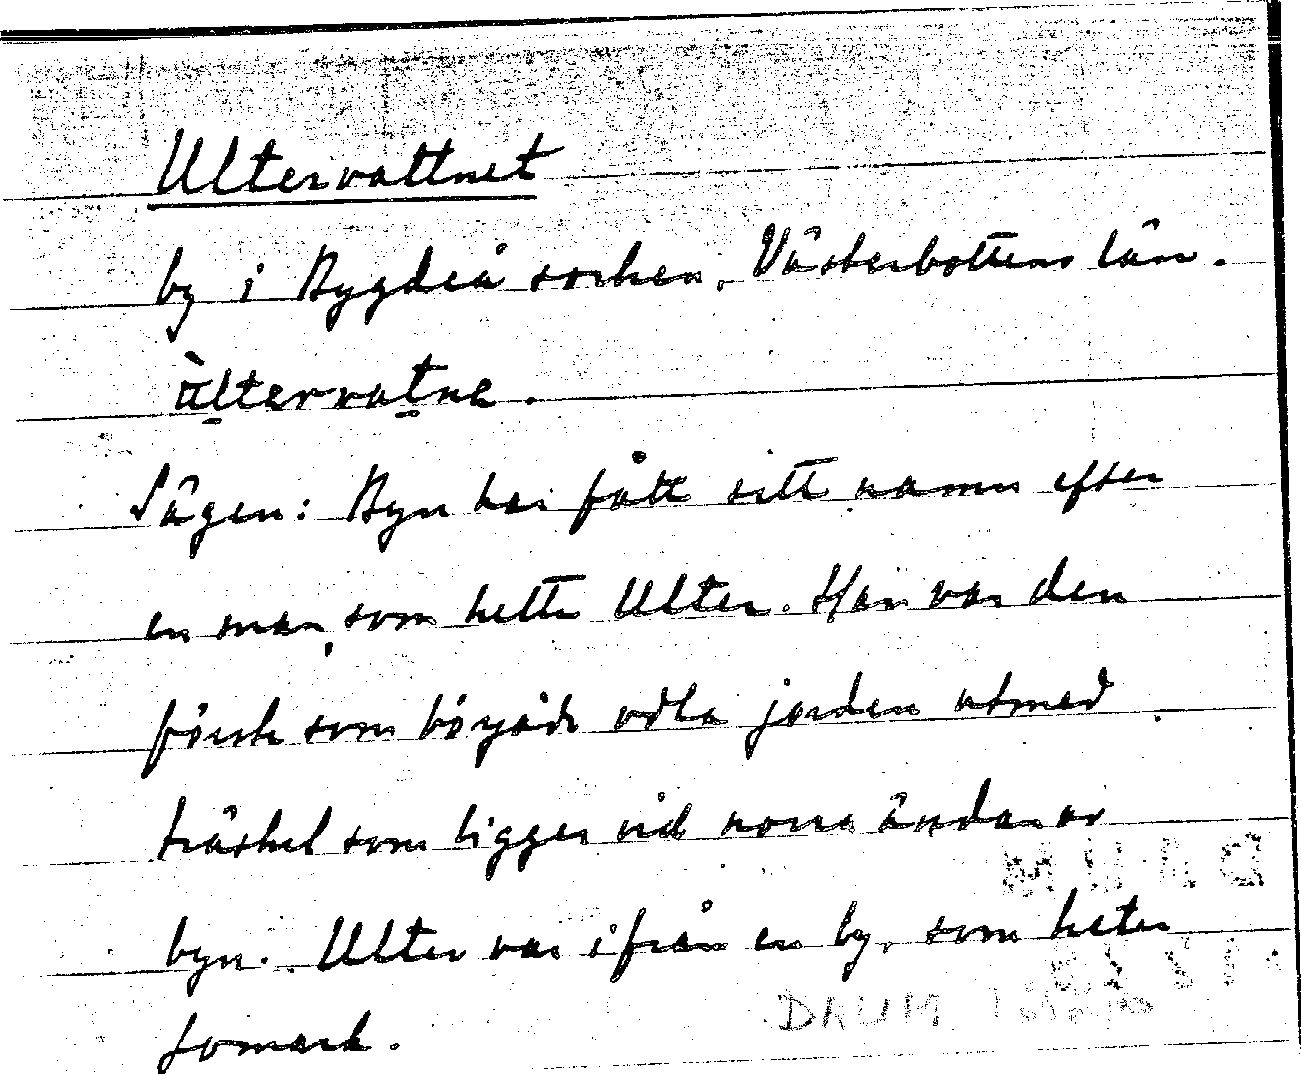 Ultervattnet
by i Bygdeå socken, Västerbottens län.
Sägen: Byn har fått sitt namn efter
en man, som hette Ulter. Han var den
förste som började odla jorden utmed
träsket som ligger vid norra ändan av
byn. Ulter var ifrån en by, som heter
Jomark.
DAUM